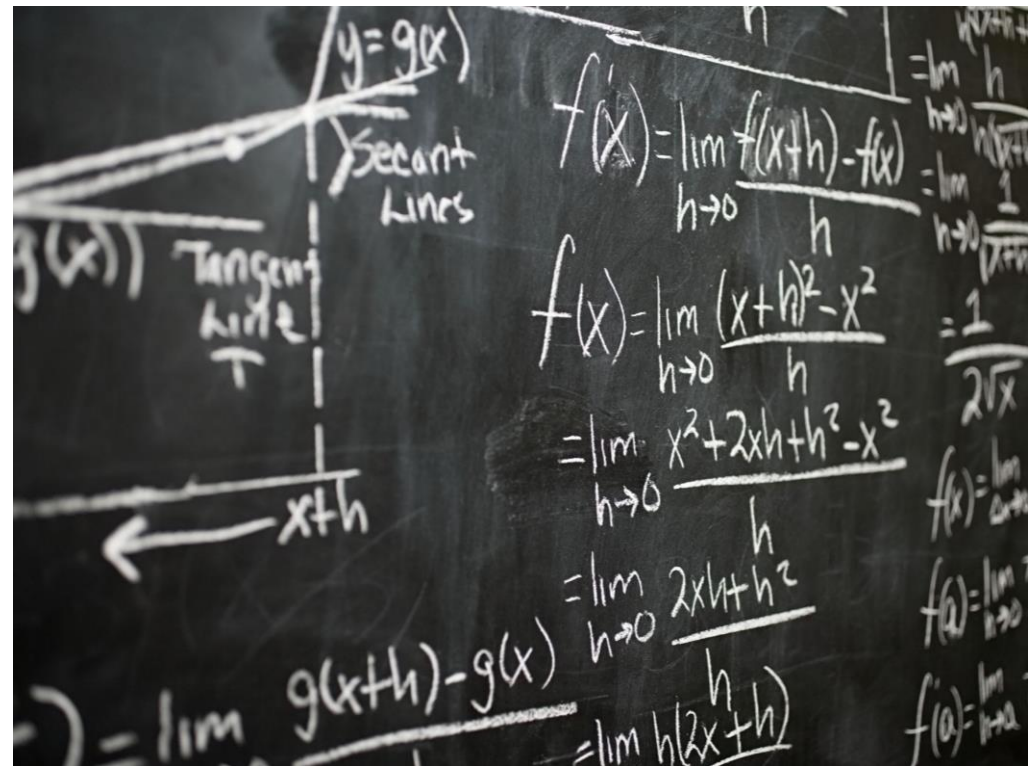 y = g(x)
Secant
Lines
g(x))
Tangent
Line
T
x+h
) = lim g(x+h) - g(x)
h
f'(x) = lim f(x+h) - f(x)
h→0 h
f(x) = lim (x+h)² - x²
h→0 h
= lim x² + 2xh + h² - x²
h→0 h
= lim 2xh + h²
h→0 h
= lim h(2x + h)
= lim h
h→0
= lim 1
h→0
= 1
2√x
f(x) = lim
f(a) = lim
h→0
f'(a) = lim